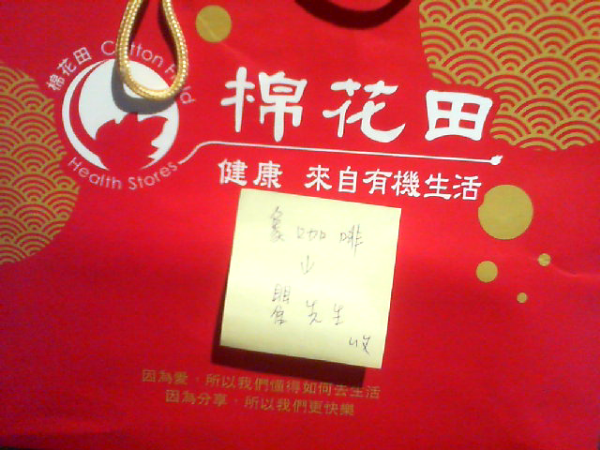 棉花田 Cotton Field
Health Stores
棉花田
健康 來自有機生活
咖啡
↓
先生
收
因為愛，所以我們懂得如何去生活
因為分享，所以我們更快樂